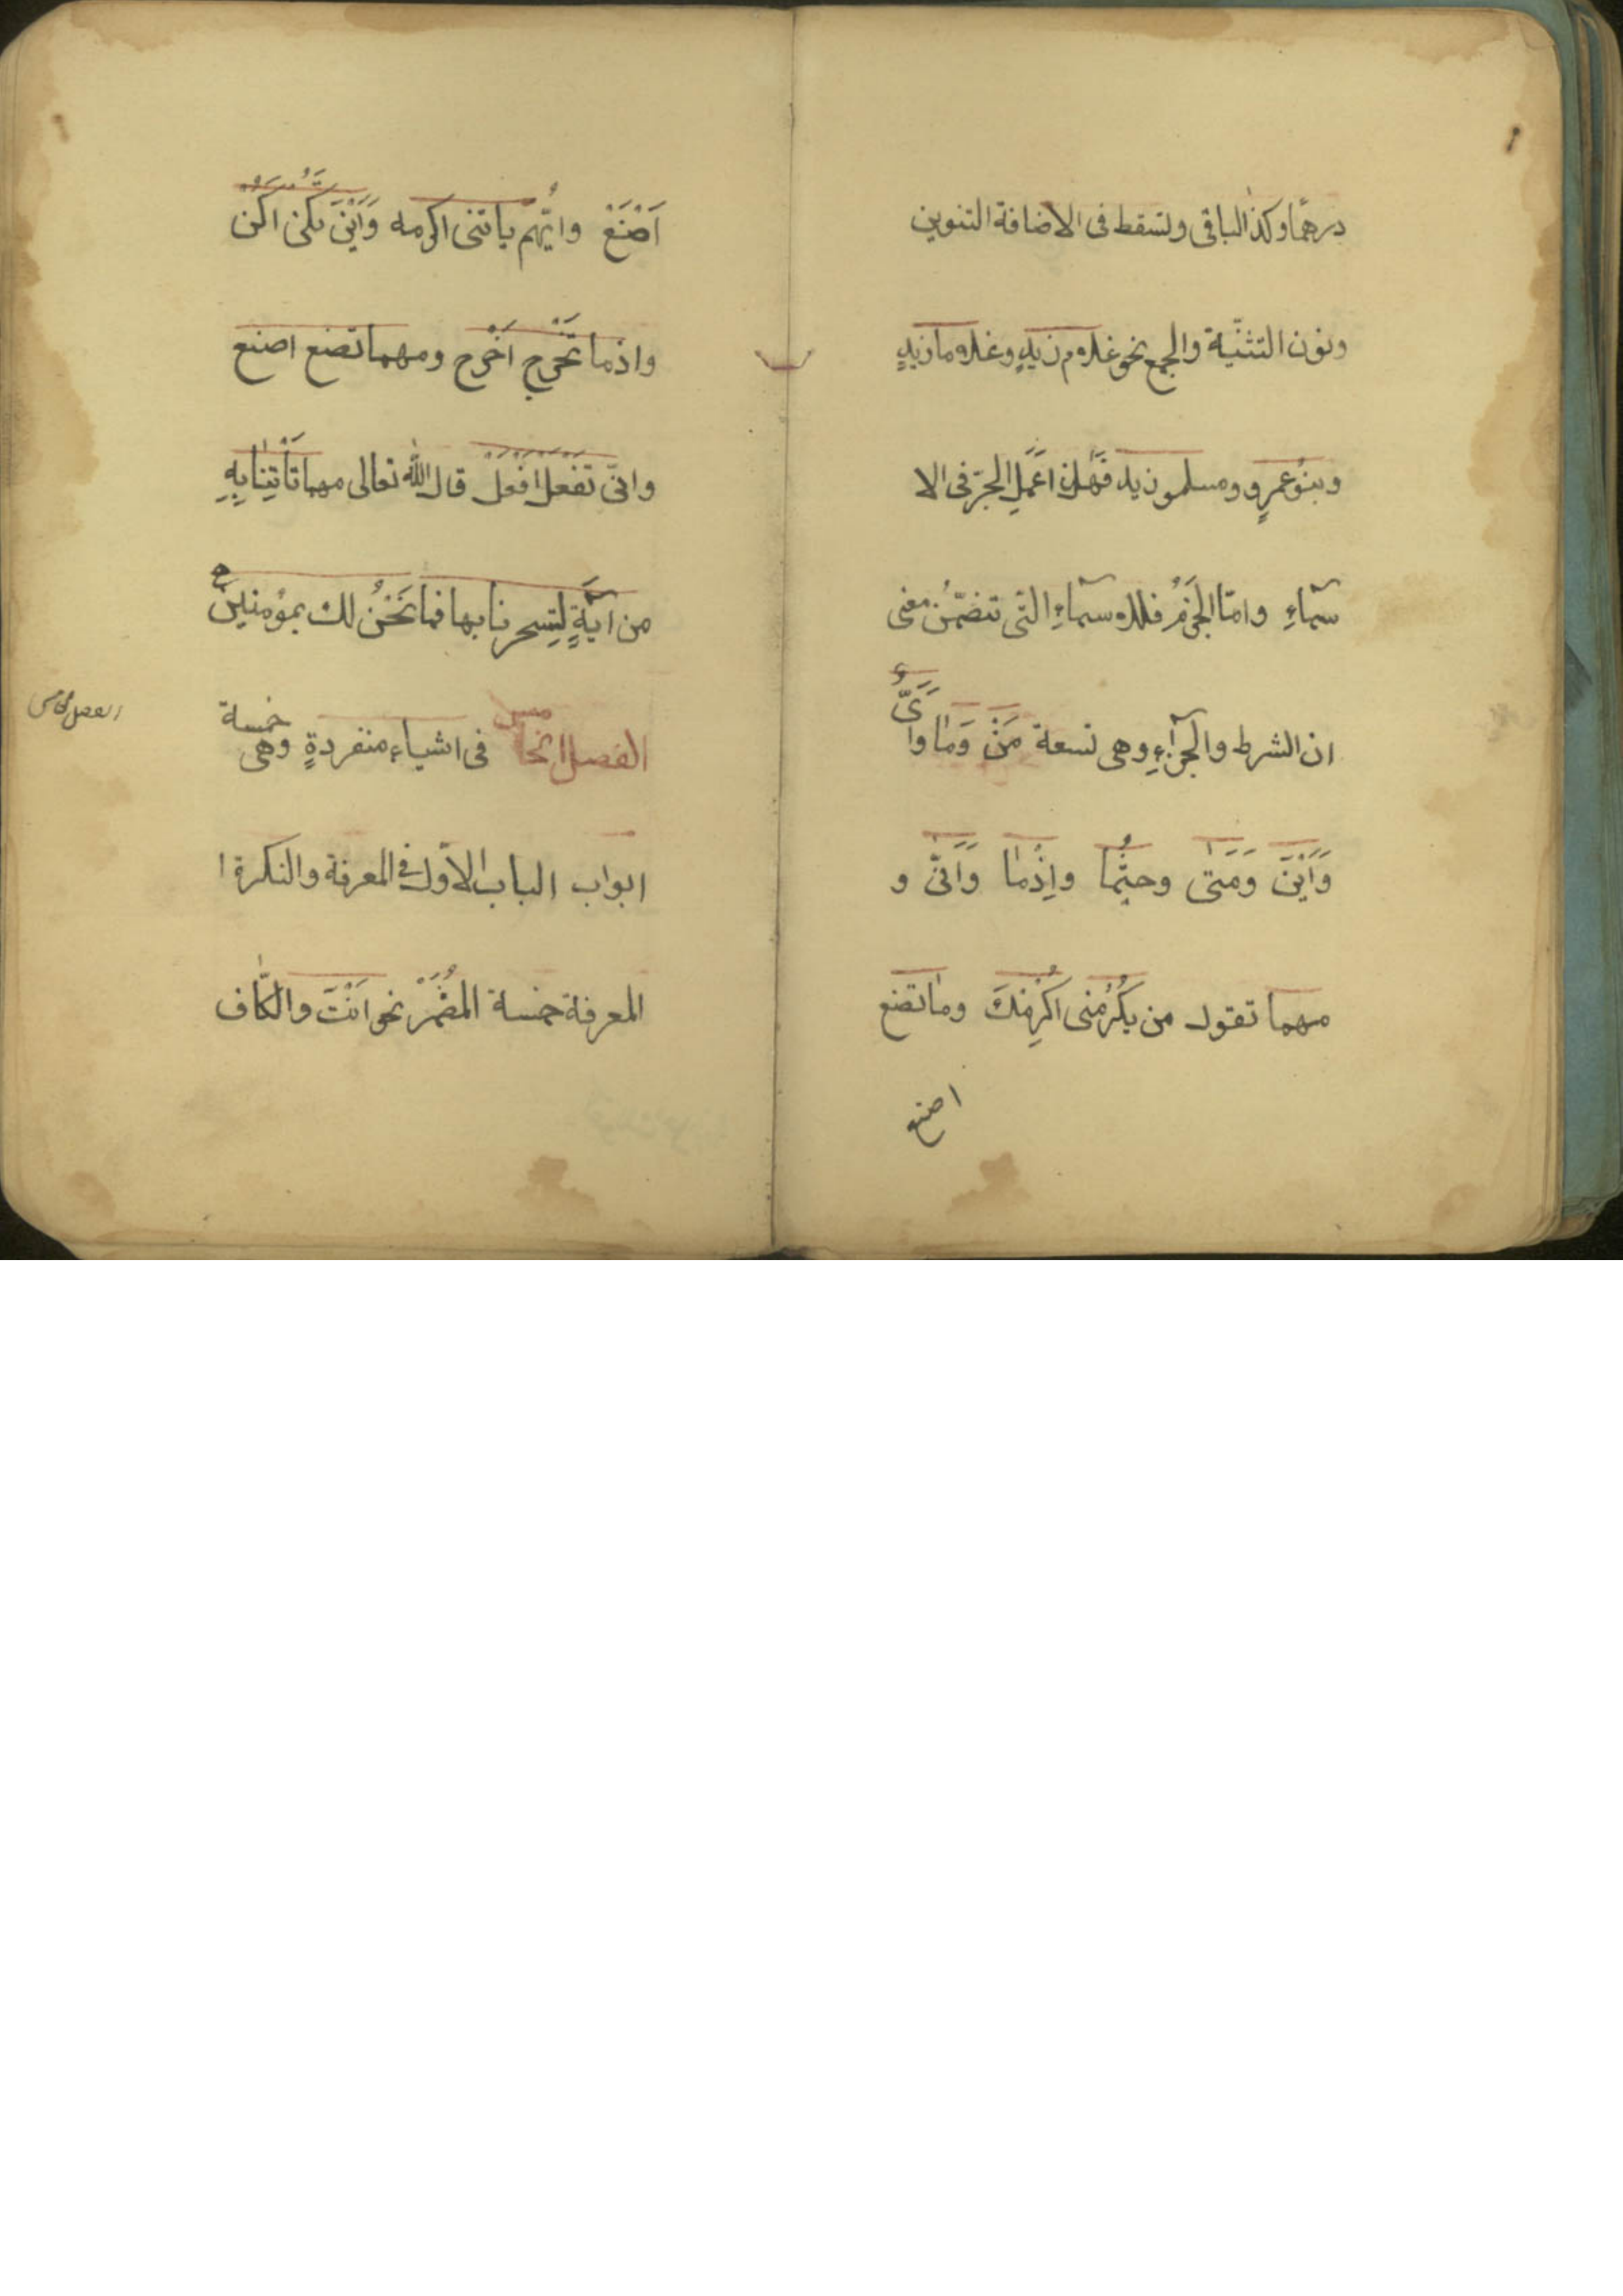 درهمًا وكذا الباقى وتسقط فى الاضافة التنوين
ونون التثنّية والجمع نحو غلام زيدٍ وغلاما زيدٍ
وبنو عمرٍو ومسلمو زيد فهٰذا عَمَلِ الجرّ فى الا
سمآءِ وامّا الجَزمُ فللاسمآءِ التّى تتضمّن معنى
ان الشرط والجزآءِ وهى تسعة مَنْ وَمٰا واَىُّ
وَاَيْنَ وَمَتىٰ وحيثُما واِذْمٰا وَاَنّىٰ و
مهما تقول من يكْرُمنى اكْرِمْكَ ومٰا تصنع
اصنع
اَصْنَعْ وايُّهم ياتنى اكرمه وَاَيْنَ تكن اكن
واذما تَخْرج اَخْرج ومهما تصنع اصنع
وانّى تفعل افعل قال اللّٰه تعالى مهما تَاْتِنٰا بِهِ
من آيَةٍ لِتسحرنا بها فما نَحْنُ لك بمؤمنين
الفصل الخامس فى اشياء منفردةٍ وهى خمسة
الفصل الخامس
ابواب الباب الاوّل فى المعرفة والنكرة ا
المعرفة خمسة المُضْمَرْ نحو اَنْتَ والكٰاف